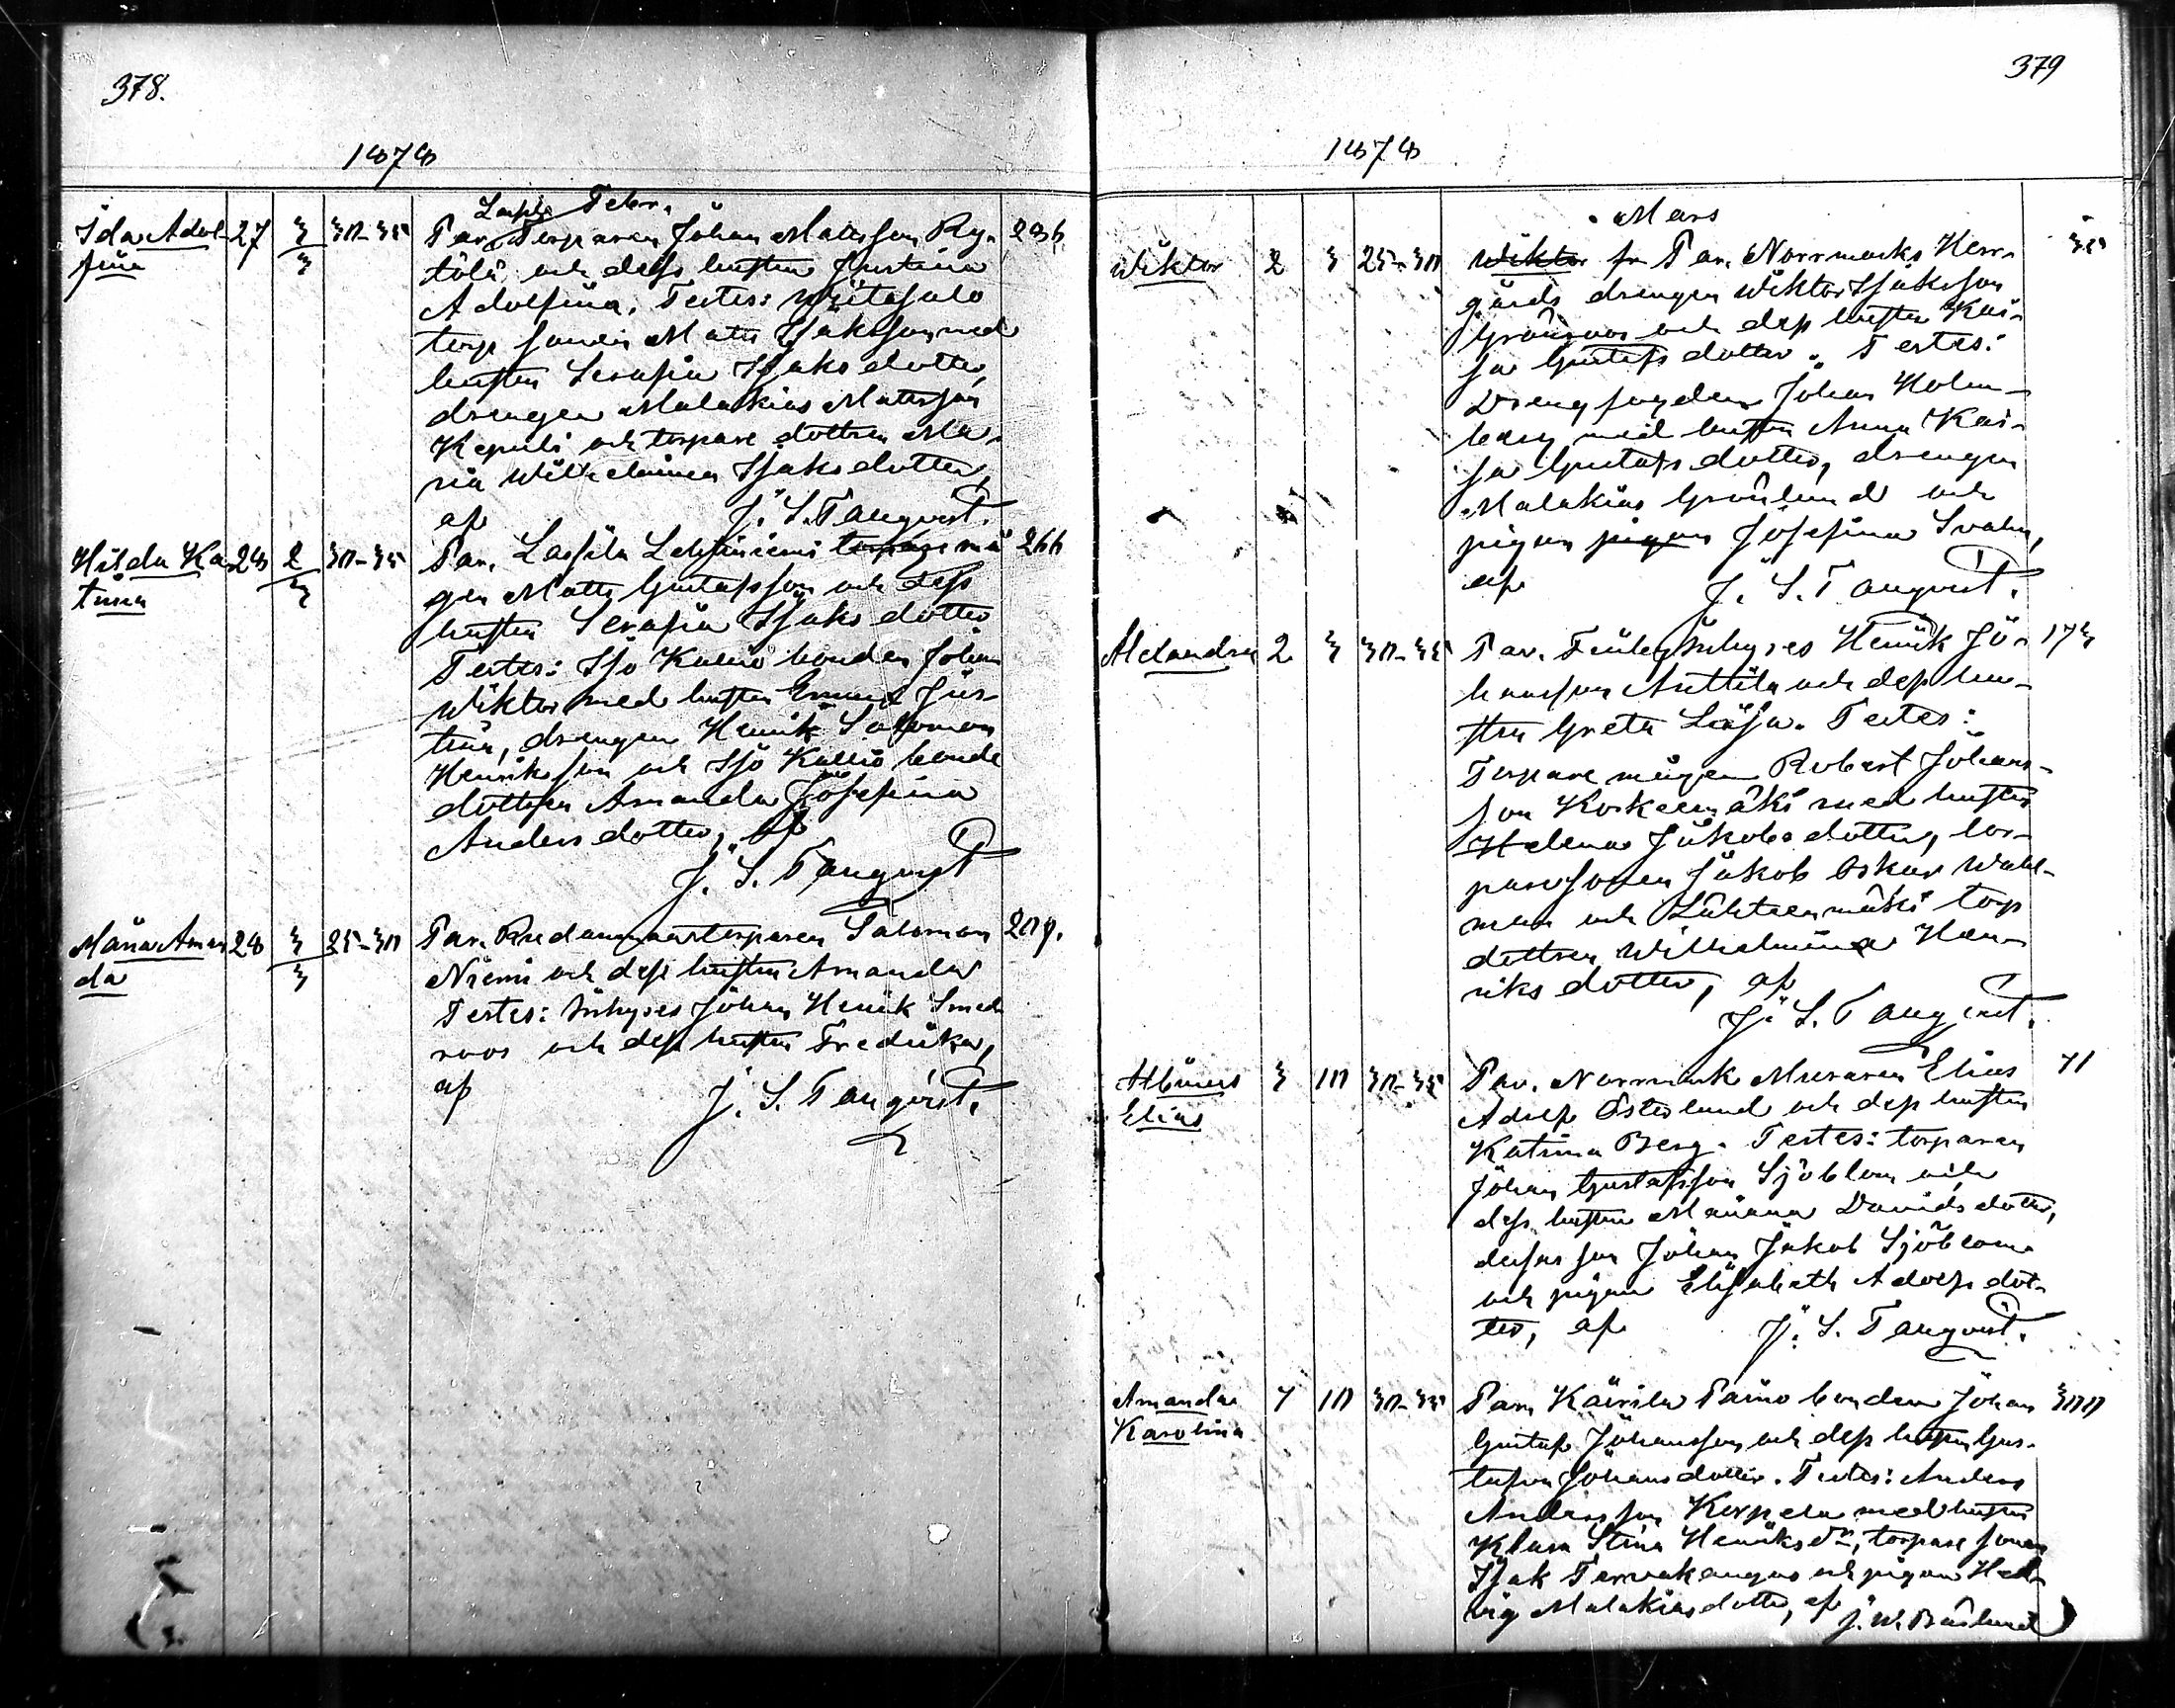 378.
1878
Febr.
Ida Adol-
fina
27
3/3
30-35
Par. Torparen Johan Matsson Ry-
236
tölä och dess hustru Justina
Adolfina. Testes: Wiitasalo
torp sonen Mats Isaksson med
hustru Serafia Isaksdotter,
drengen Malakias Matsson
Kepuli och torpare dottren Ma-
ria Wilhelmina Isaksdotter,
af J. S. Tanqvist.
Hilda Ka-
trina
28
2/3
30-35
Par. Lassila torpare må-
266
gen Matts Gustafsson och dess
hustru Serafia Isaksdotter
Testes: Iso Kallio bonden Johan
Wiktor med hustru Emma Jus-
tina, drengen Henrik Salomon
Henriksson och Iso Kallio bonde
dottren Amanda Josefina
Andersdotter, af
J. S. Tanqvist
Maria Aman-
da
28
3/3
25-30
Par. torparen Salomon
209.
Niemi och dess hustru Amanda
Testes: Inhyses Johan Henrik Smed-
roos och dess hustru Fredrika,
af J. S. Tanqvist.
379
1878
Mars
Wiktor
2
3
25-30
Wiktor fr Par. Norrmarks Herr-
35
gårds drengen Wiktor Isaksson
Grönroos och dess hustru Kai-
sa Gustafsdotter. Testes:
Drengfogden Johan Holm-
berg med hustru Anna Kai-
sa Gustafsdotter, drengen
Malakias Grönlund och
pigan pigan Josefina Svahn,
af J. S. Tanqvist.
Alexandra
2
3
30-35
Par. Inhyses Henrik Jo-
173
hansson Anttila och dess hu-
stru Greta Lisa. Testes:
Torpare mågen Robert Johans-
son Koskenmäki med hustru
Helena Jakobsdotter, tor-
paresonen Jakob Oskar Wahl-
man och Lähteenmäki torp
dottren Wilhelmina Hen-
riksdotter, af
J. S. Tanqvist.
Albinus
Elias
3
10
30-35
Par. Norrmark Muraren Elias
71
Adolf Österlund och dess hustru
Katrina Berg. Testes: torparen
Johan Gustafsson Sjöblom och
dess hustru Mariana Davidsdotter,
deras son Johan Jakob Sjöblom
och pigan Elisabeth Adolfsdot-
ter, af J. S. Tanqvist.
Amanda
Karolina
7
10
30-35
Par. Kairila Paino bonden Johan
300
Gustaf Johansson och dess hustru Gus-
tafva Johansdotter. Testes: Anders
Andersson Korpela med hustru
Klara Stina Henriksdr, torpare sonen
Isak Tervakangas och pigan Hed-
vig Malakiasdotter, af
J. W. Båslund